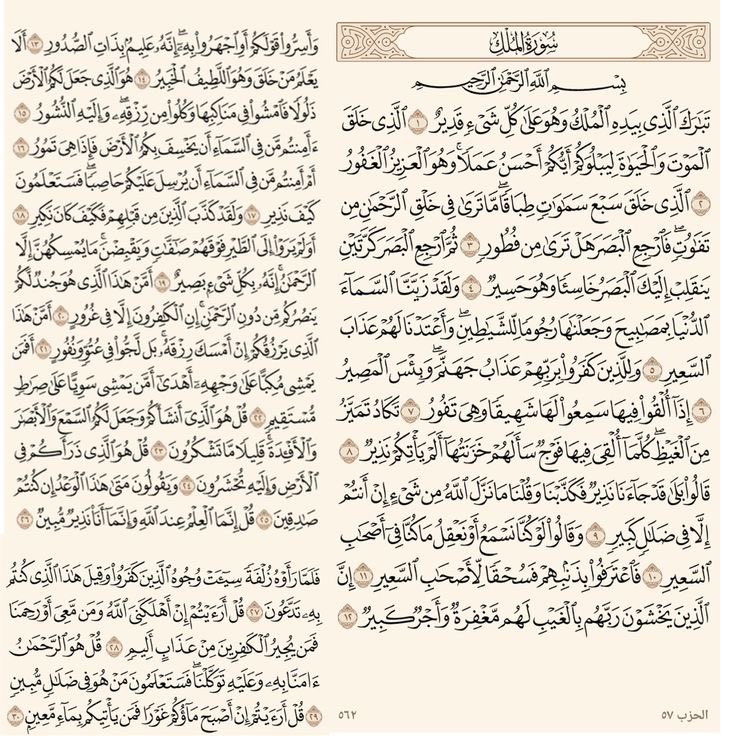 سُورَةُ المُلْكِ
بِسْمِ اللَّهِ الرَّحْمَٰنِ الرَّحِيمِ
تَبَٰرَكَ ٱلَّذِي بِيَدِهِ ٱلْمُلْكُ وَهُوَ عَلَىٰ كُلِّ شَيْءٍ قَدِيرٌ ١ ٱلَّذِي خَلَقَ
ٱلْمَوْتَ وَٱلْحَيَوٰةَ لِيَبْلُوَكُمْ أَيُّكُمْ أَحْسَنُ عَمَلًا ۚ وَهُوَ ٱلْعَزِيزُ ٱلْغَفُورُ
٢ ٱلَّذِي خَلَقَ سَبْعَ سَمَٰوَٰتٍ طِبَاقًا ۖ مَّا تَرَىٰ فِي خَلْقِ ٱلرَّحْمَٰنِ مِن
تَفَٰوُتٍ ۖ فَٱرْجِعِ ٱلْبَصَرَ هَلْ تَرَىٰ مِن فُطُورٍ ٣ ثُمَّ ٱرْجِعِ ٱلْبَصَرَ كَرَّتَيْنِ
يَنقَلِبْ إِلَيْكَ ٱلْبَصَرُ خَاسِئًا وَهُوَ حَسِيرٌ ٤ وَلَقَدْ زَيَّنَّا ٱلسَّمَآءَ
ٱلدُّنْيَا بِمَصَٰبِيحَ وَجَعَلْنَٰهَا رُجُومًا لِّلشَّيَٰطِينِ ۖ وَأَعْتَدْنَا لَهُمْ عَذَابَ
ٱلسَّعِيرِ ٥ وَلِلَّذِينَ كَفَرُوا۟ بِرَبِّهِمْ عَذَابُ جَهَنَّمَ ۖ وَبِئْسَ ٱلْمَصِيرُ
٦ إِذَآ أُلْقُوا۟ فِيهَا سَمِعُوا۟ لَهَا شَهِيقًا وَهِيَ تَفُورُ ٧ تَكَادُ تَمَيَّزُ
مِنَ ٱلْغَيْظِ ۖ كُلَّمَآ أُلْقِيَ فِيهَا فَوْجٌ سَأَلَهُمْ خَزَنَتُهَآ أَلَمْ يَأْتِكُمْ نَذِيرٌ ٨
قَالُوا۟ بَلَىٰ قَدْ جَآءَنَا نَذِيرٌ فَكَذَّبْنَا وَقُلْنَا مَا نَزَّلَ ٱللَّهُ مِن شَيْءٍ إِنْ أَنتُمْ
إِلَّا فِي ضَلَٰلٍ كَبِيرٍ ٩ وَقَالُوا۟ لَوْ كُنَّا نَسْمَعُ أَوْ نَعْقِلُ مَا كُنَّا فِيٓ أَصْحَٰبِ
ٱلسَّعِيرِ ١٠ فَٱعْتَرَفُوا۟ بِذَنۢبِهِمْ فَسُحْقًا لِّأَصْحَٰبِ ٱلسَّعِيرِ ١١ إِنَّ
ٱلَّذِينَ يَخْشَوْنَ رَبَّهُم بِٱلْغَيْبِ لَهُم مَّغْفِرَةٌ وَأَجْرٌ كَبِيرٌ ١٢
الحزب ٥٧
٥٦٢
وَأَسِرُّوا۟ قَوْلَكُمْ أَوِ ٱجْهَرُوا۟ بِهِۦٓ ۖ إِنَّهُۥ عَلِيمٌۢ بِذَاتِ ٱلصُّدُورِ ١٣ أَلَا
يَعْلَمُ مَنْ خَلَقَ وَهُوَ ٱللَّطِيفُ ٱلْخَبِيرُ ١٤ هُوَ ٱلَّذِي جَعَلَ لَكُمُ ٱلْأَرْضَ
ذَلُولًا فَٱمْشُوا۟ فِي مَنَاكِبِهَا وَكُلُوا۟ مِن رِّزْقِهِۦ ۖ وَإِلَيْهِ ٱلنُّشُورُ ١٥
ءَأَمِنتُم مَّن فِي ٱلسَّمَآءِ أَن يَخْسِفَ بِكُمُ ٱلْأَرْضَ فَإِذَا هِيَ تَمُورُ ١٦
أَمْ أَمِنتُم مَّن فِي ٱلسَّمَآءِ أَن يُرْسِلَ عَلَيْكُمْ حَاصِبًا ۖ فَسَتَعْلَمُونَ
كَيْفَ نَذِيرِ ١٧ وَلَقَدْ كَذَّبَ ٱلَّذِينَ مِن قَبْلِهِمْ فَكَيْفَ كَانَ نَكِيرِ ١٨
أَوَلَمْ يَرَوْا۟ إِلَى ٱلطَّيْرِ فَوْقَهُمْ صَٰٓفَّٰتٍ وَيَقْبِضْنَ ۚ مَا يُمْسِكُهُنَّ إِلَّا
ٱلرَّحْمَٰنُ ۚ إِنَّهُۥ بِكُلِّ شَيْءٍۭ بَصِيرٌ ١٩ أَمَّنْ هَٰذَا ٱلَّذِي هُوَ جُندٌ لَّكُمْ
يَنصُرُكُم مِّن دُونِ ٱلرَّحْمَٰنِ ۚ إِنِ ٱلْكَٰفِرُونَ إِلَّا فِي غُرُورٍ ٢٠ أَمَّنْ هَٰذَا
ٱلَّذِي يَرْزُقُكُمْ إِنْ أَمْسَكَ رِزْقَهُۥ ۚ بَل لَّجُّوا۟ فِي عُتُوٍّ وَنُفُورٍ ٢١ أَفَمَن
يَمْشِي مُكِبًّا عَلَىٰ وَجْهِهِۦٓ أَهْدَىٰٓ أَمَّن يَمْشِي سَوِيًّا عَلَىٰ صِرَٰطٍ
مُّسْتَقِيمٍ ٢٢ قُلْ هُوَ ٱلَّذِيٓ أَنشَأَكُمْ وَجَعَلَ لَكُمُ ٱلسَّمْعَ وَٱلْأَبْصَٰرَ
وَٱلْأَفْـِٔدَةَ ۖ قَلِيلًا مَّا تَشْكُرُونَ ٢٣ قُلْ هُوَ ٱلَّذِي ذَرَأَكُمْ فِي
ٱلْأَرْضِ وَإِلَيْهِ تُحْشَرُونَ ٢٤ وَيَقُولُونَ مَتَىٰ هَٰذَا ٱلْوَعْدُ إِن كُنتُمْ
صَٰدِقِينَ ٢٥ قُلْ إِنَّمَا ٱلْعِلْمُ عِندَ ٱللَّهِ وَإِنَّمَآ أَنَا۠ نَذِيرٌ مُّبِينٌ ٢٦
فَلَمَّا رَأَوْهُ زُلْفَةً سِيٓـَٔتْ وُجُوهُ ٱلَّذِينَ كَفَرُوا۟ وَقِيلَ هَٰذَا ٱلَّذِي كُنتُم
بِهِۦ تَدَّعُونَ ٢٧ قُلْ أَرَءَيْتُمْ إِنْ أَهْلَكَنِيَ ٱللَّهُ وَمَن مَّعِيَ أَوْ رَحِمَنَا
فَمَن يُجِيرُ ٱلْكَٰفِرِينَ مِنْ عَذَابٍ أَلِيمٍ ٢٨ قُلْ هُوَ ٱلرَّحْمَٰنُ
ءَامَنَّا بِهِۦ وَعَلَيْهِ تَوَكَّلْنَا ۖ فَسَتَعْلَمُونَ مَنْ هُوَ فِي ضَلَٰلٍ مُّبِينٍ
٢٩ قُلْ أَرَءَيْتُمْ إِنْ أَصْبَحَ مَآؤُكُمْ غَوْرًا فَمَن يَأْتِيكُم بِمَآءٍ مَّعِينٍۭ ٣٠